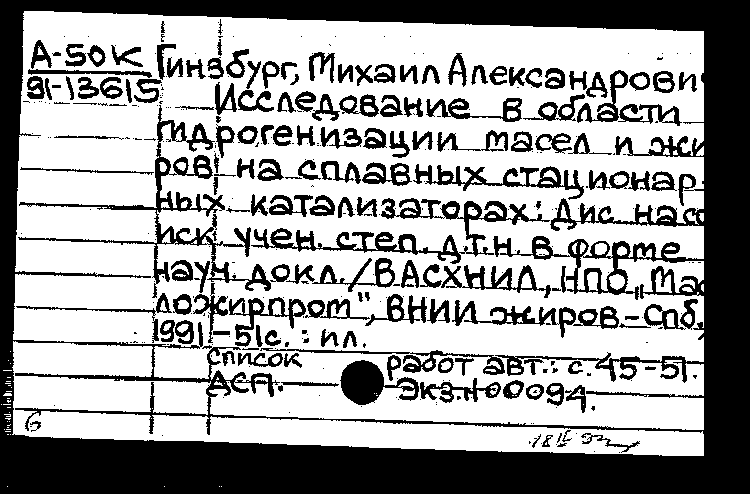 А-50К
91-13615
Гинзбург, Михаил Александрович
Исследование в области
гидрогенизации масел и жи
ров на сплавных стационар-
ных катализаторах: Дис на со
иск учен. степ. д.т.н. в форме
науч. докл./ВАСХНИЛ, НПО „Мас
ложирпром", ВНИИ жиров.-Спб.,
1991.-51с.: ил.
список работ авт.: с.45-51.
ДСП. Экз.N00094.
6